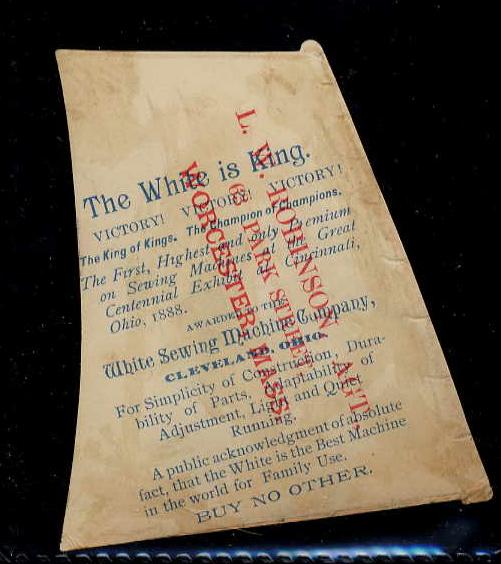 The White is King.
VICTORY! VICTORY! VICTORY!
The King of Kings. The Champion of Champions.
The First, Highest and only Premium
on Sewing Machines at the Great
Centennial Exhibit at Cincinnati,
Ohio, 1888.
AWARDED TO THE
White Sewing Machine Company,
CLEVELAND, OHIO.
For Simplicity of Construction, Dura-
bility of Parts, Adaptability of
Adjustment, Light and Quiet
Running.
A public acknowledgment of absolute
fact, that the White is the Best Machine
in the world for Family Use.
BUY NO OTHER.
L. W. ROBINSON, AGT.
PARK STREET
WORCESTER, MASS.